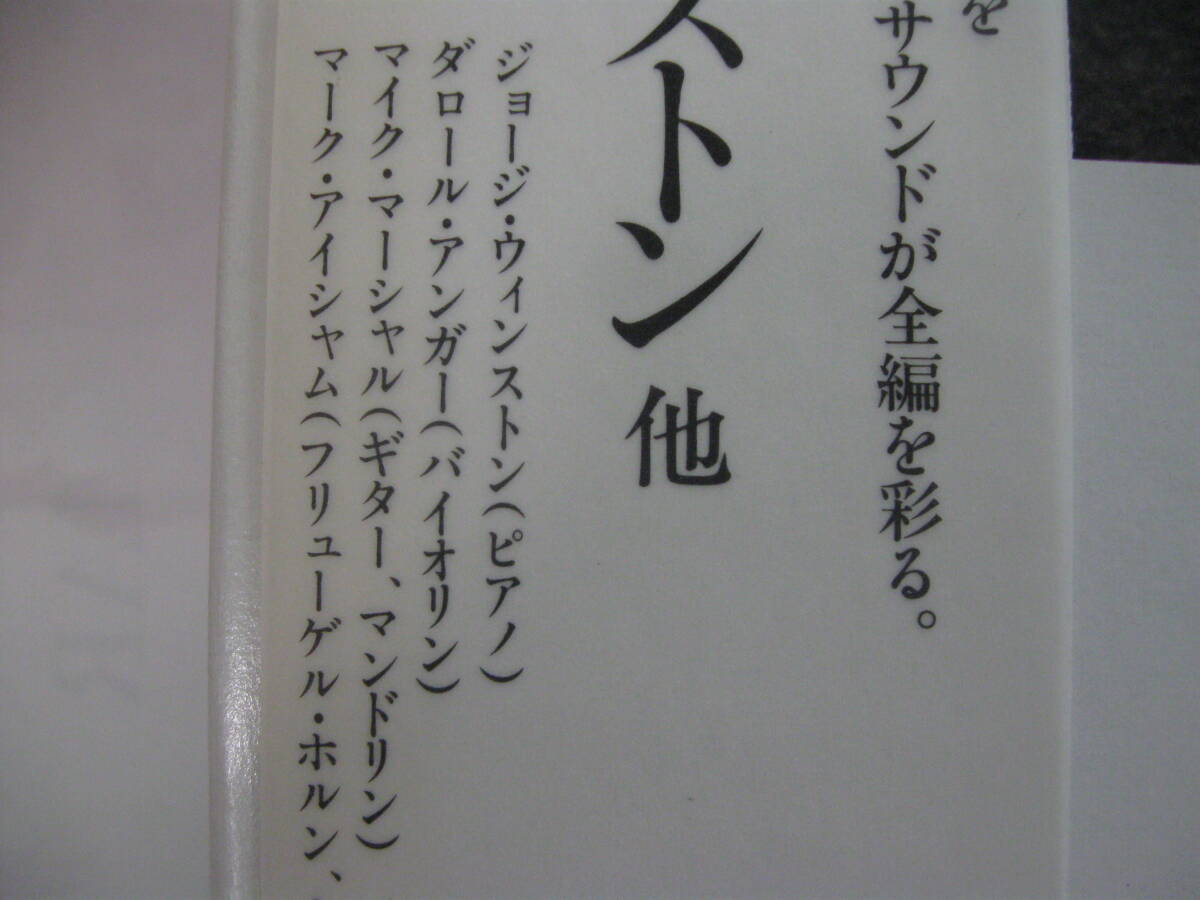 を
サウンドが全編を彩る。
ストン 他
ジョージ・ウィンストン(ピアノ)
ダロール・アンガー(バイオリン)
マイク・マーシャル(ギター、マンドリン)
マーク・アイシャム(フリューゲル・ホルン、